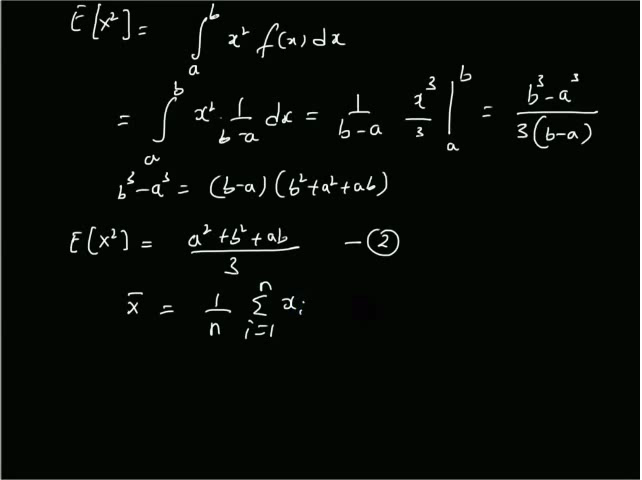 E[X²] = ∫ₐᵇ x² f(x) dx
= ∫ₐᵇ x² · 1/(b-a) dx = 1/(b-a) x³/3 |ₐᵇ = (b³-a³)/(3(b-a))
b³-a³ = (b-a) (b²+a²+ab)
E[X²] = (a²+b²+ab)/3 — ②
x̄ = 1/n Σᵢ₌₁ⁿ xᵢ